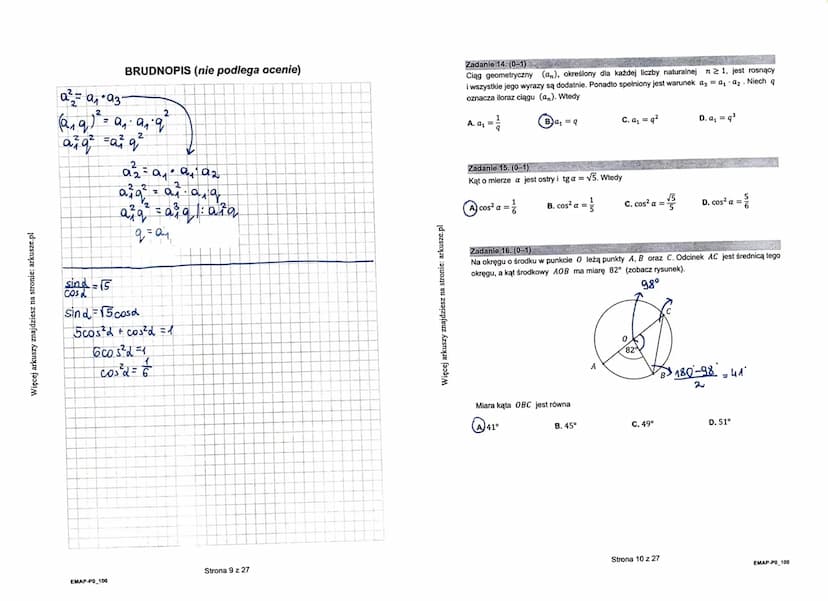 BRUDNOPIS (nie podlega ocenie)
a₂² = a₁ · a₃
(a₁q)² = a₁ · a₁ · q²
a₁²q² = a₁² q²
a₂² = a₁ · a₁ · a₂
a₁²q² = a₁² · a₁q
a₁²q² = a₁³q |: a₁²q
q = a₁
sinα/cosα = √5
sinα = √5cosα
5cos²α + cos²α = 1
6cos²α = 1
cos²α = 1/6
Więcej arkuszy znajdziesz na stronie: arkusze.pl
Strona 9 z 27
EMAP-P0_100
Zadanie 14. (0–1)
Ciąg geometryczny (aₙ), określony dla każdej liczby naturalnej n ≥ 1, jest rosnący
i wszystkie jego wyrazy są dodatnie. Ponadto spełniony jest warunek a₃ = a₁ · a₂ . Niech q
oznacza iloraz ciągu (aₙ). Wtedy
A. a₁ = 1/q B. a₁ = q C. a₁ = q² D. a₁ = q³
Zadanie 15. (0–1)
Kąt o mierze α jest ostry i tg α = √5. Wtedy
A. cos² α = 1/6 B. cos² α = 1/5 C. cos² α = √5/5 D. cos² α = 5/6
Zadanie 16. (0–1)
Na okręgu o środku w punkcie O leżą punkty A, B oraz C. Odcinek AC jest średnicą tego
okręgu, a kąt środkowy AOB ma miarę 82° (zobacz rysunek).
98°
C
O
82°
A
B
180°-98°/2 = 41°
Miara kąta OBC jest równa
A. 41° B. 45° C. 49° D. 51°
Więcej arkuszy znajdziesz na stronie: arkusze.pl
Strona 10 z 27
EMAP-P0_100